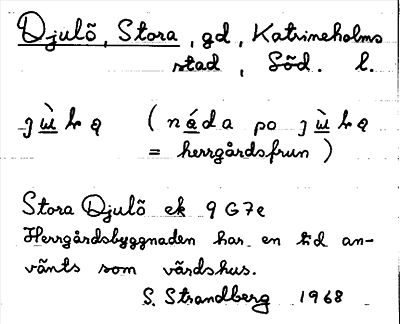 Djulö, Stora, gd, Katrineholms
stad, Söd. l.
( náda po
= herrgårdsfrun )
Stora Djulö ek 9 G7e
Herrgårdsbyggnaden har en tid an-
vänts som värdshus.
S. Strandberg 1968